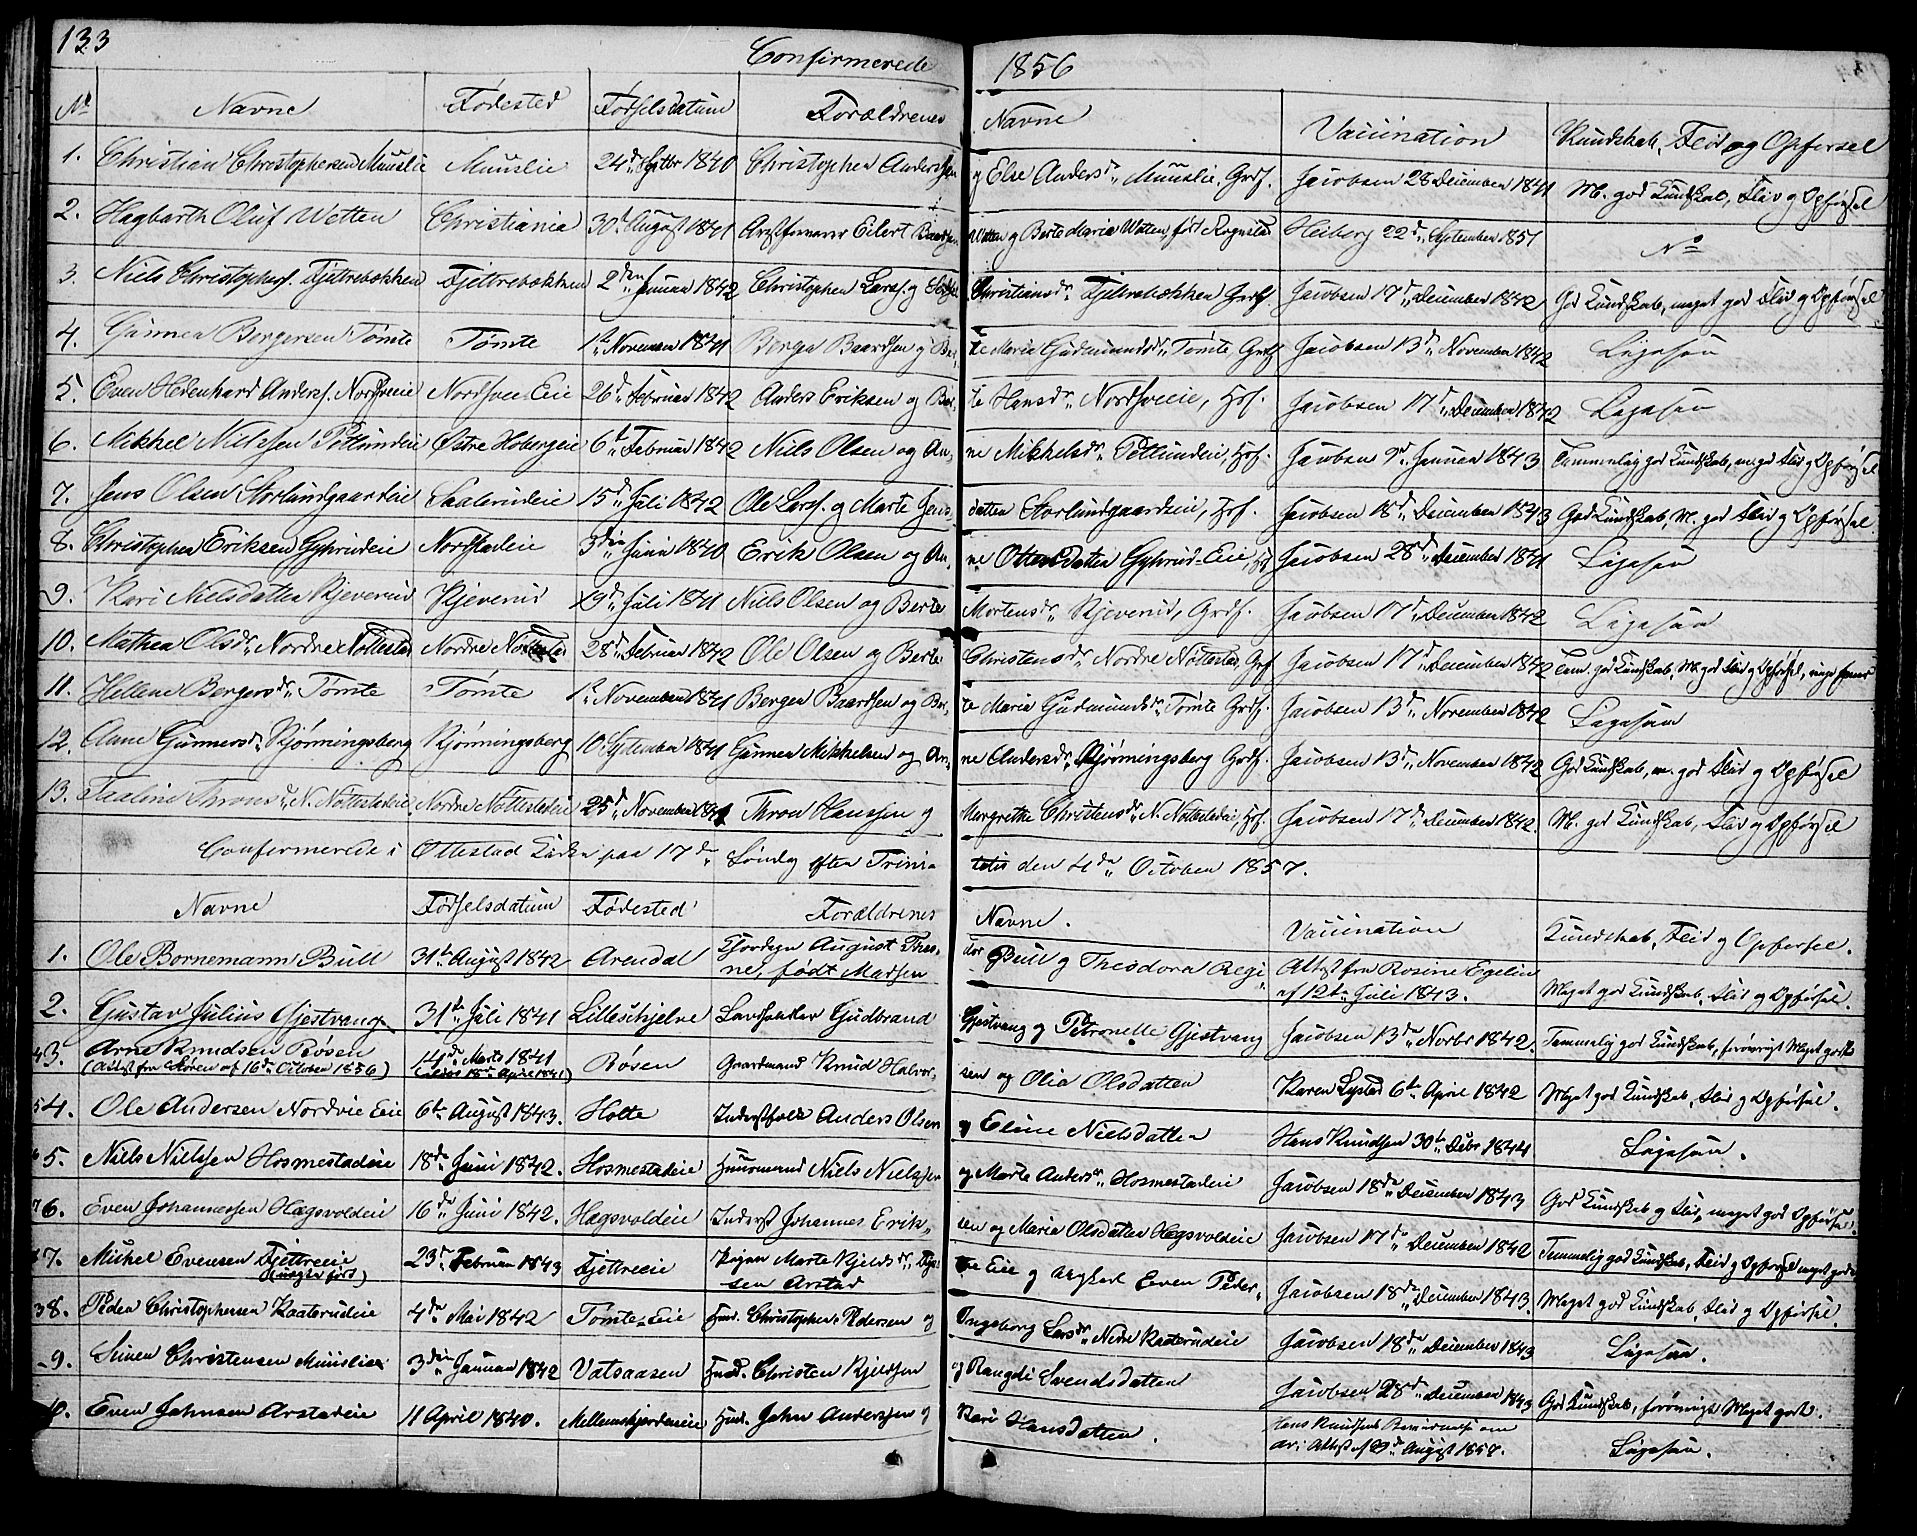 133 Confirmerede 1856
No Navne Fødested Fødselsdatum Forældrenes Navne Vaccination Kundskab, Flid og Opførsel
1. Christian Christophersen Muuslie Muuslie 24d Septbr 1840 Christopher Anderssen og Else Andersdr Muuslie, Grdf. Jacobsen 28 December 1841 M. god Kundskab, Flid og Opførsel
2. Hagbarth Oluf Wetten Christiania 30d August 1841 Eilert Baardsen Wetten og Berte Maria Wetten, født Rognstad Heiberg 22d September 1851 No
3. Niels Christophers. Fjettrebækken Fjettrebækken 2den Januar 1842 Christopher Larss. og Christiansdr Fjettrebækken Grdf Jacobsen 17d December 1842 God Kundskab, meget god Flid og Opførsel
4. Gunner Bergersen Tømte Tømte 1te November 1841 Berger Baardsen og Berte Maria Gudmundsdr Tømte Grdf Jacobsen 13d November 1842 Ligesaa
5. Even Hedenhard Anders. Nordsveeie Nordsvee Eie 26d Februar 1842 Anders Eriksen og Berte Hansdr Nordsveeie, Hsf. Jacobsen 17d December 1842 Ligesaa
6. Mikkel Nielssen Pellundeie Østre Hobergeie 6te Februar 1842 Niels Olsen og Anne Mikkelsdr Pellundeie, Hsf. Jacobsen 9d Januar 1843 Temmelig god Kundskab, m. god Flid og Opførsel
7. Jens Olsen Storlundgaardeie Saaterudeie 15d Juli 1842 Ole Larss. og Marte Jensdatter Storlundgaardeie, Hsf. Jacobsen 18d December 1843 God Kundskab, M. god Flid og Opførsel
8. Christopher Eriksen Gyhrudeie Nordstadeie 3die Juni 1840 Erik Olsen og Anne Ottersdatter Gyhrud-Eie, Hsf Jacobsen 28d December 1841 Ligesaa
9. Kari Nielsdatter Kjeverud Kjeverud 19d Juli 1841 Niels Olsen og Berte Mortensdr Kjeverud, Grdf. Jacobsen 17d December 1842 Ligesaa
10. Mathea Olsdr Nordre Nøttestad Nordre Nøttestad 28d Februar 1842 Ole Olsen og Berte Christensdr Nordre Nøttestad, Grdf Jacobsen 17d December 1842 Tem. god Kundskab, M. god Flid og Opførsel
11. Hellene Bergersdr Tømte Tømte 1te November 1841 Berger Baardsen og Berte Maria Gudmundsdr Tømte Grdf. Jacobsen 13d November 1842 Ligesaa
12. Anne Gunnersdr Kjønningsberg Kjønningsberg 10 September 1841 Gunner Mikkelsen og Anne Andersdr Kjønningsberg Grdf. Jacobsen 13d November 1842 God Kundskab, m. god Flid og Opførsel
13. Pauline Thronsdr N. Nøttestadeie Nordre Nøttestadeie 25d November 1841 Thron Hanssen og Margrethe Christensdr N. Nøttestadeie, Hsf. Jacobsen 17d December 1842. M. god Kundskab, Flid og Opførsel
Confirmerede i Ottestad Kirke paa 17de Søndag efter Trinitatis den 4de October 1857.
Navne Fødselsdatum Fødested Forældrenes Navne. Vaccination Kundskab, Flid og Opførsel.
1. Ole Bornemann Bull 31te August 1842 Arendal August Theodor Bull og Theodora Regine, født Madsen Attest fra Rosine Egelin af 12te Juli 1843. Meget god Kundskab, Flid og Opførsel.
2. Gustav Julius Gjestvang 31te Juli 1841 Lilleskjelve Landhandler Gudbrand Gjestvang og Petronelle Gjestvang Jacobsen 13de Novbr 1842. Temmelig god Kundskab, forøvrigt Meget godt
3. Arne Knudsen Røsen (Attest fra Støren af 16de October 1856) 14de Marts 1841 Røsen Gaardmand Knud Halvorsen og Olia Olsdatter Karen Lysted 6te April 1842 Meget god Kundskab, Flid og Opførsel.
4. Ole Andersen Nordvie Eie 6te August 1843. Holte Inderstfolk Anders Olsen og Eline Nielsdatter Hans Knudsen 30te Decbr 1844 Ligesaa.
5. Niels Nielssen Hosmestadeie 18de Juni 1842. Hosmestadeie Huusmand Niels Nielssen og Marte Andersdr Hosmestadeie Jacobsen 18de December 1843 God Kundskab og Flid, meget god Opførsel.
6. Even Johannessen Hagsvoldeie 16de Juni 1842. Hagsvoldeie Inderst Johannes Eriksen og Maria Olsdatter Hagsvoldeie Jacobsen 17de December 1842 Temmelig god Kundskab, Flid og Opførsel meget god
7. Mikkel Evensen Fjettreeie (uægte født) 23d Februar 1843 Fjettreeie Pigen Marte Kjeldsdr Fjettre Eie og Ungkarl Even Pedersen Arstad Jacobsen 18d December 1843. Meget god Kundskab, Flid og Opførsel.
8. Peder Christophersen Kaaterudeie 4de Mai 1842 Tømte Eie Huusd. Christopher Pedersen og Ingeborg Larsdr Nedre Kaaterudeie Jacobsen 18de December 1843 Ligesaa.
9. Simen Christensen Muuslieie 3die Januar 1842 Vatsaasen Huusd. Christen Kjeldsen og Rangdi Svendsdatter Jacobsen 28de December 1843 God Kundskab, forøvrigt Meget godt.
10. Even Johnsen Arstadeie 11 April 1840. Mellemskjærdeneie Huusd. John Anderssen og Kari Hansdatter. Hans Knudsens Attest af August 1857. Ligesaa.